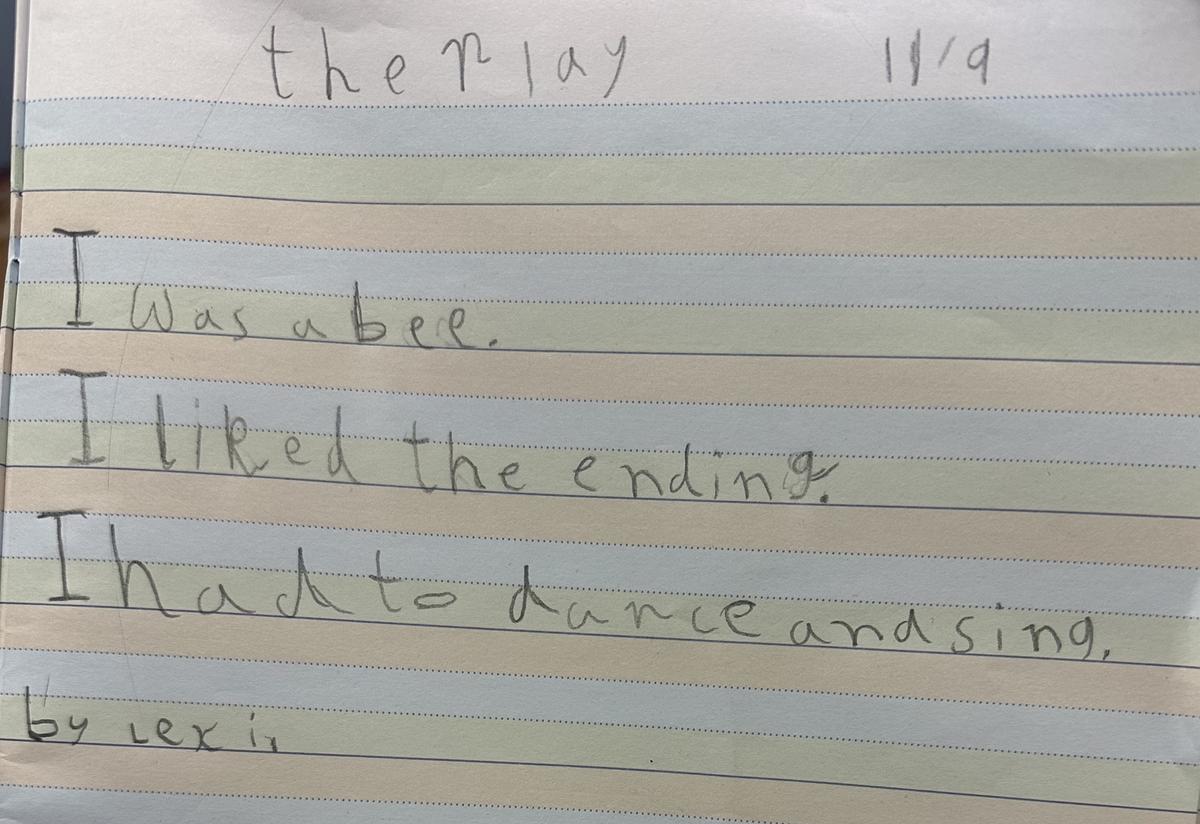 the Play 11/9
I was a bee.
I liked the ending.
I had to dance and sing.
by